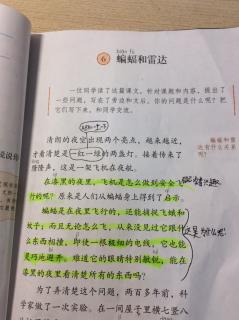 biān fú
6 蝙蝠和雷达
一位同学读了这篇课文，针对课题和内容，提出了
一些问题，写在了旁边和文后。你的问题是什么呢？把
它们写下来，和同学交流。
清朗的夜空出现两个亮点，越来越近，
才看清楚是一红一绿的两盏灯。接着传来了
隆隆声，这是一架飞机在夜航。
蝙蝠和雷
达有什么关系
呢？
在漆黑的夜里，飞机是怎么做到安全飞
行的呢？原来是人们从蝙蝠身上得到了启示。
蝙蝠是在夜里飞行的，还能捕捉飞蛾和
蚊子；而且无论怎么飞，从来没见过它跟什
么东西相撞，即使一根极细的电线，它也能
灵巧地避开。难道它的眼睛特别敏锐，能在
漆黑的夜里看清楚所有的东西吗？
为了弄清楚这个问题，两百多年前，科
学家做了一次实验。在一间屋子里横七竖八